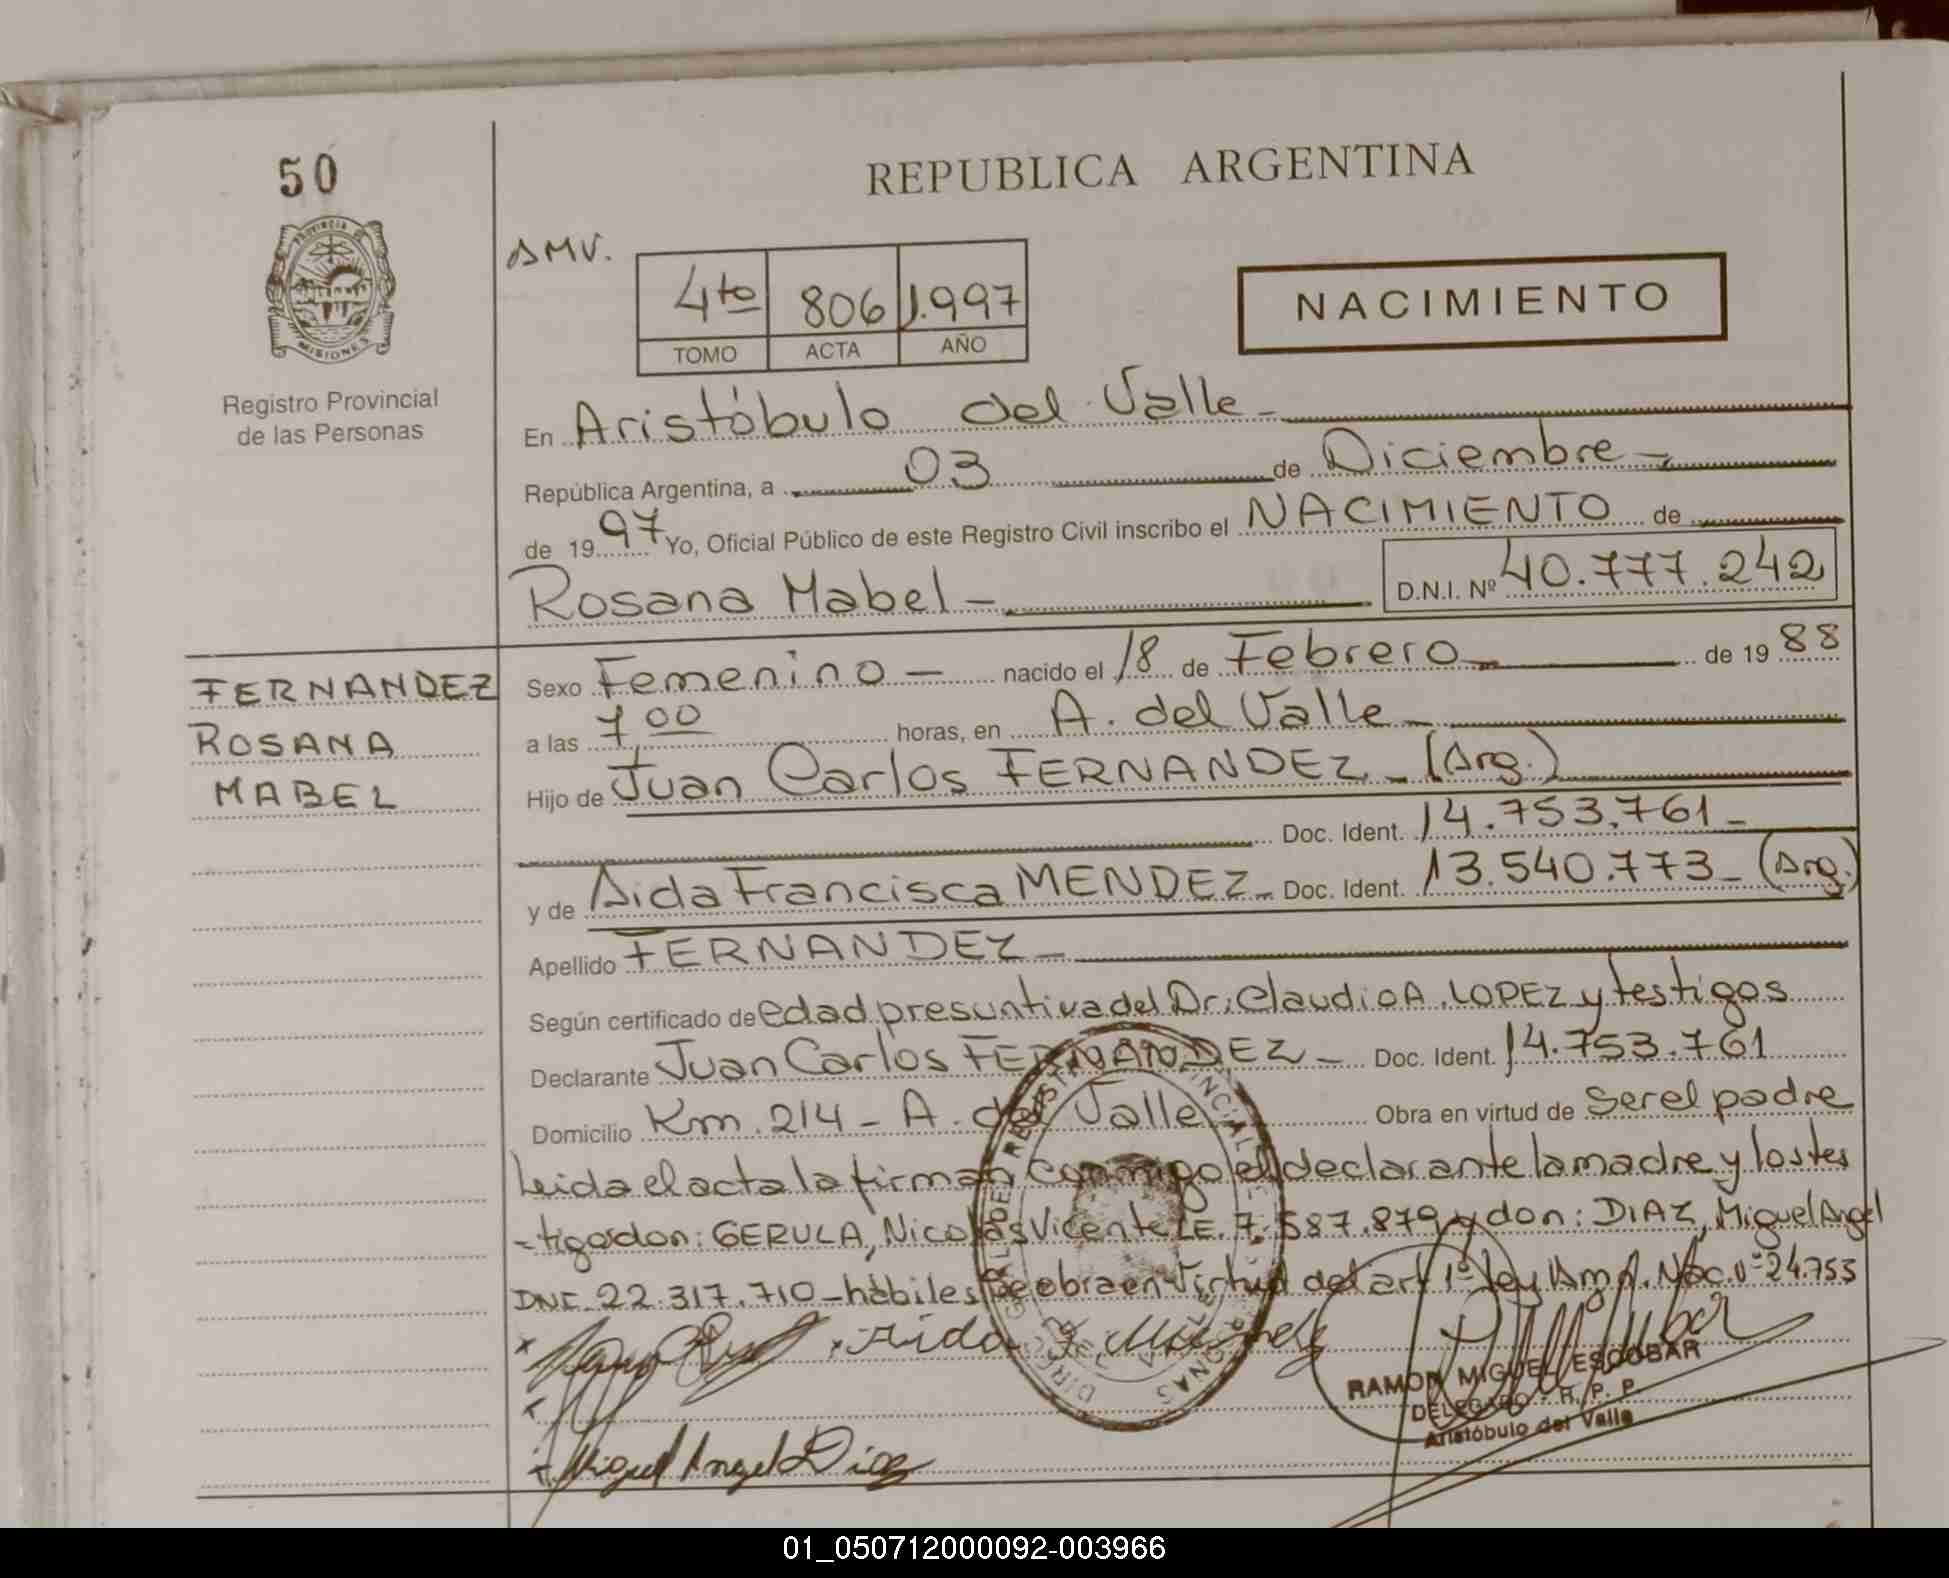 50
REPUBLICA ARGENTINA
PROVINCIA DE
MISIONES
Registro Provincial
de las Personas
AMV.
4to 806 1.997
TOMO ACTA AÑO
NACIMIENTO
En Aristóbulo del Valle -
República Argentina, a 03 de Diciembre -
de 1997 Yo, Oficial Público de este Registro Civil inscribo el NACIMIENTO de
Rosana Mabel - D.N.I. Nº 40.777.242
FERNANDEZ
ROSANA
MABEL
Sexo Femenino - nacido el 18 de Febrero - de 1988
a las 7 00 horas, en A. del Valle -
Hijo de Juan Carlos FERNANDEZ - (Arg.)
Doc. Ident. 14.753.761 -
y de Aida Francisca MENDEZ - Doc. Ident. 13.540.773 - (Arg.)
Apellido FERNANDEZ -
Según certificado de edad presuntiva del Dr: Claudio A. LOPEZ y testigos
Declarante Juan Carlos FERNANDEZ - Doc. Ident. 14.753.761
Domicilio Km. 214 - A. del Valle Obra en virtud de ser el padre
Leida el acta la firman conmigo el declarante la madre y los tes
-tigos don: GERULA, Nicolás Vicente LE. 7.587.879 y don: DIAZ, Miguel Angel
DNI. 22.317.710 - hábiles Se obra en virtud del art 1º ley Amp. Nac. Nº 24.753
Aida F. Mendez
RAMON MIGUEL ESCOBAR
DELEGADO - R. P. P.
Aristóbulo del Valle
Miguel Angel Diaz
01_050712000092-003966